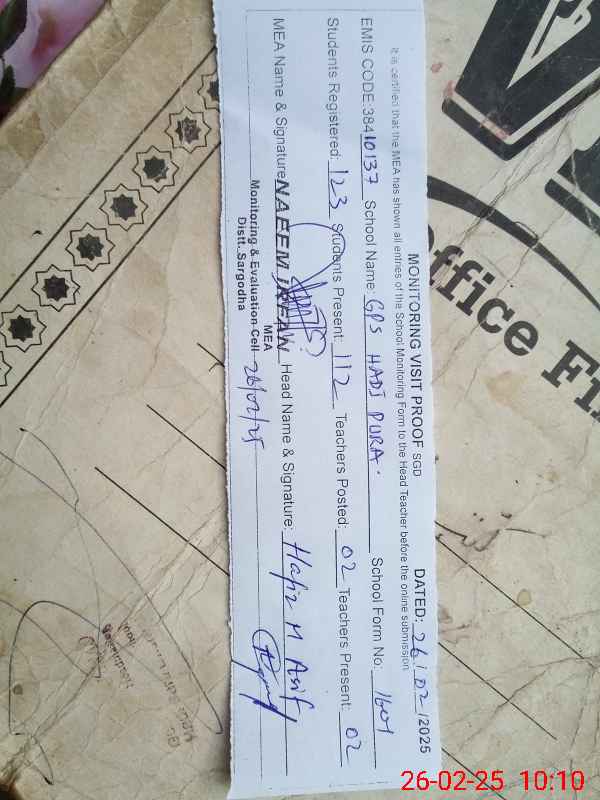 MONITORING VISIT PROOF SGD DATED: 26/02/2025
It is certified that the MEA has shown all entries of the School Monitoring Form to the Head Teacher before the online submission
EMIS CODE:38410137 School Name: GPS HADI PURA. School Form No: 1601
Students Registered: 123 Students Present: 112 Teachers Posted: 02 Teachers Present: 02
MEA Name & Signature NAEEM IRFAN Head Name & Signature: Hafiz M Asif
MEA
Monitoring & Evaluation Cell 26/02/25
Distt. Sargodha
Office Fi
26-02-25 10:10